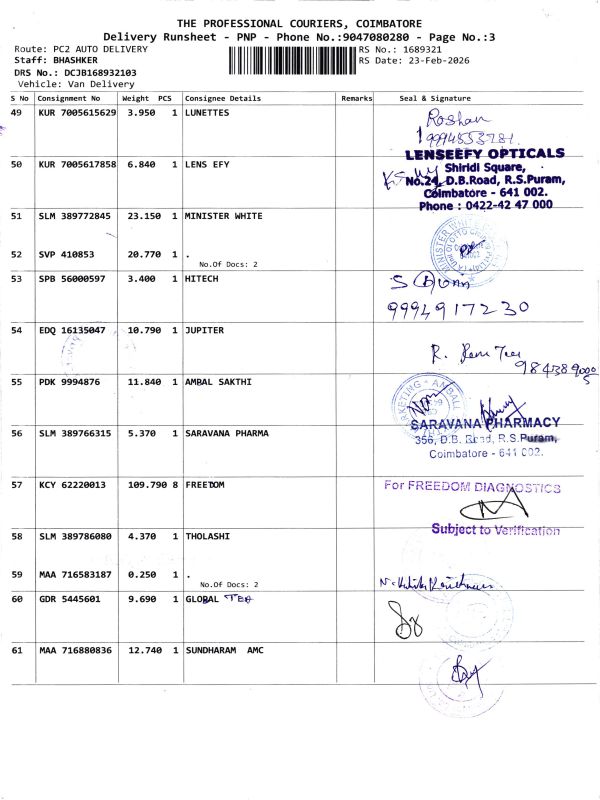 THE PROFESSIONAL COURIERS, COIMBATORE
Delivery Runsheet - PNP - Phone No.:9047080280 - Page No.:3
Route: PC2 AUTO DELIVERY
RS No.: 1689321
Staff: BHASHKER
RS Date: 23-Feb-2026
DRS No.: DCJB168932103
Vehicle: Van Delivery
S No Consignment No Weight PCS Consignee Details Remarks Seal & Signature
49 KUR 7005615629 3.950 1 LUNETTES
Roshan
LENSEEFY OPTICALS
50 KUR 7005617858 6.840 1 LENS EFY
Shiridi Square,
No.24, D.B.Road, R.S.Puram,
Coimbatore - 641 002.
Phone : 0422-42 47 000
51 SLM 389772845 23.150 1 MINISTER WHITE
52 SVP 410853 20.770 1 .
No.Of Docs: 2
53 SPB 56000597 3.400 1 HITECH
9994917230
54 EDQ 16135047 10.790 1 JUPITER
55 PDK 9994876 11.840 1 AMBAL SAKTHI
SARAVANA PHARMACY
56 SLM 389766315 5.370 1 SARAVANA PHARMA
356, D.B. Road, R.S.Puram,
Coimbatore - 641 002.
57 KCY 62220013 109.790 8 FREEDOM
For FREEDOM DIAGNOSTICS
Subject to Verification
58 SLM 389786080 4.370 1 THOLASHI
59 MAA 716583187 0.250 1 .
No.Of Docs: 2
60 GDR 5445601 9.690 1 GLOBAL TEA
61 MAA 716880836 12.740 1 SUNDHARAM AMC